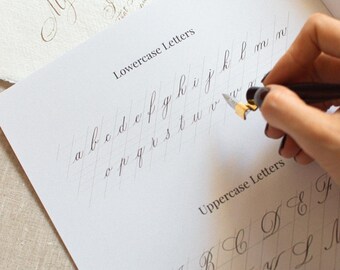 Lowercase Letters
a b c d e f g h i j k l m n
o p q r s t u v w
Uppercase Letters
B C D E F